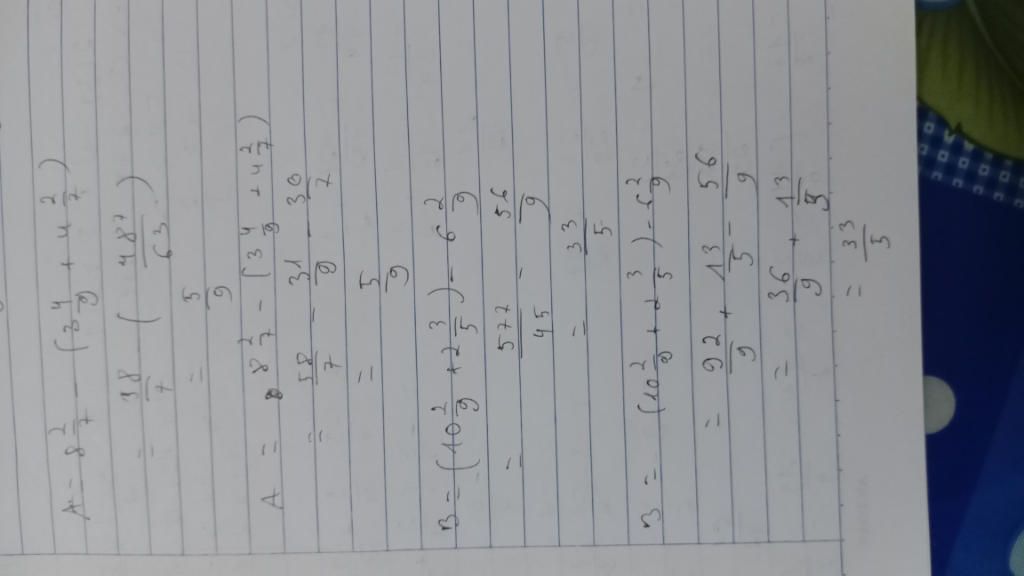 A = 8 2/7 - (3 4/9 + 4 2/7)
= 58/7 - (487/63)
= 5/9
A = 8 2/7 - (3 4/9 + 4 2/7)
= 58/7 - 31/9 - 30/7
= 5/9
B = (10 2/9 + 2 3/5) - 6 2/9
= 577/45 - 56/9
= 33/5
B = (10 2/9 + 2 3/5) - 6 2/9
= 92/9 + 13/5 - 56/9
= 36/9 + 13/5
= 33/5